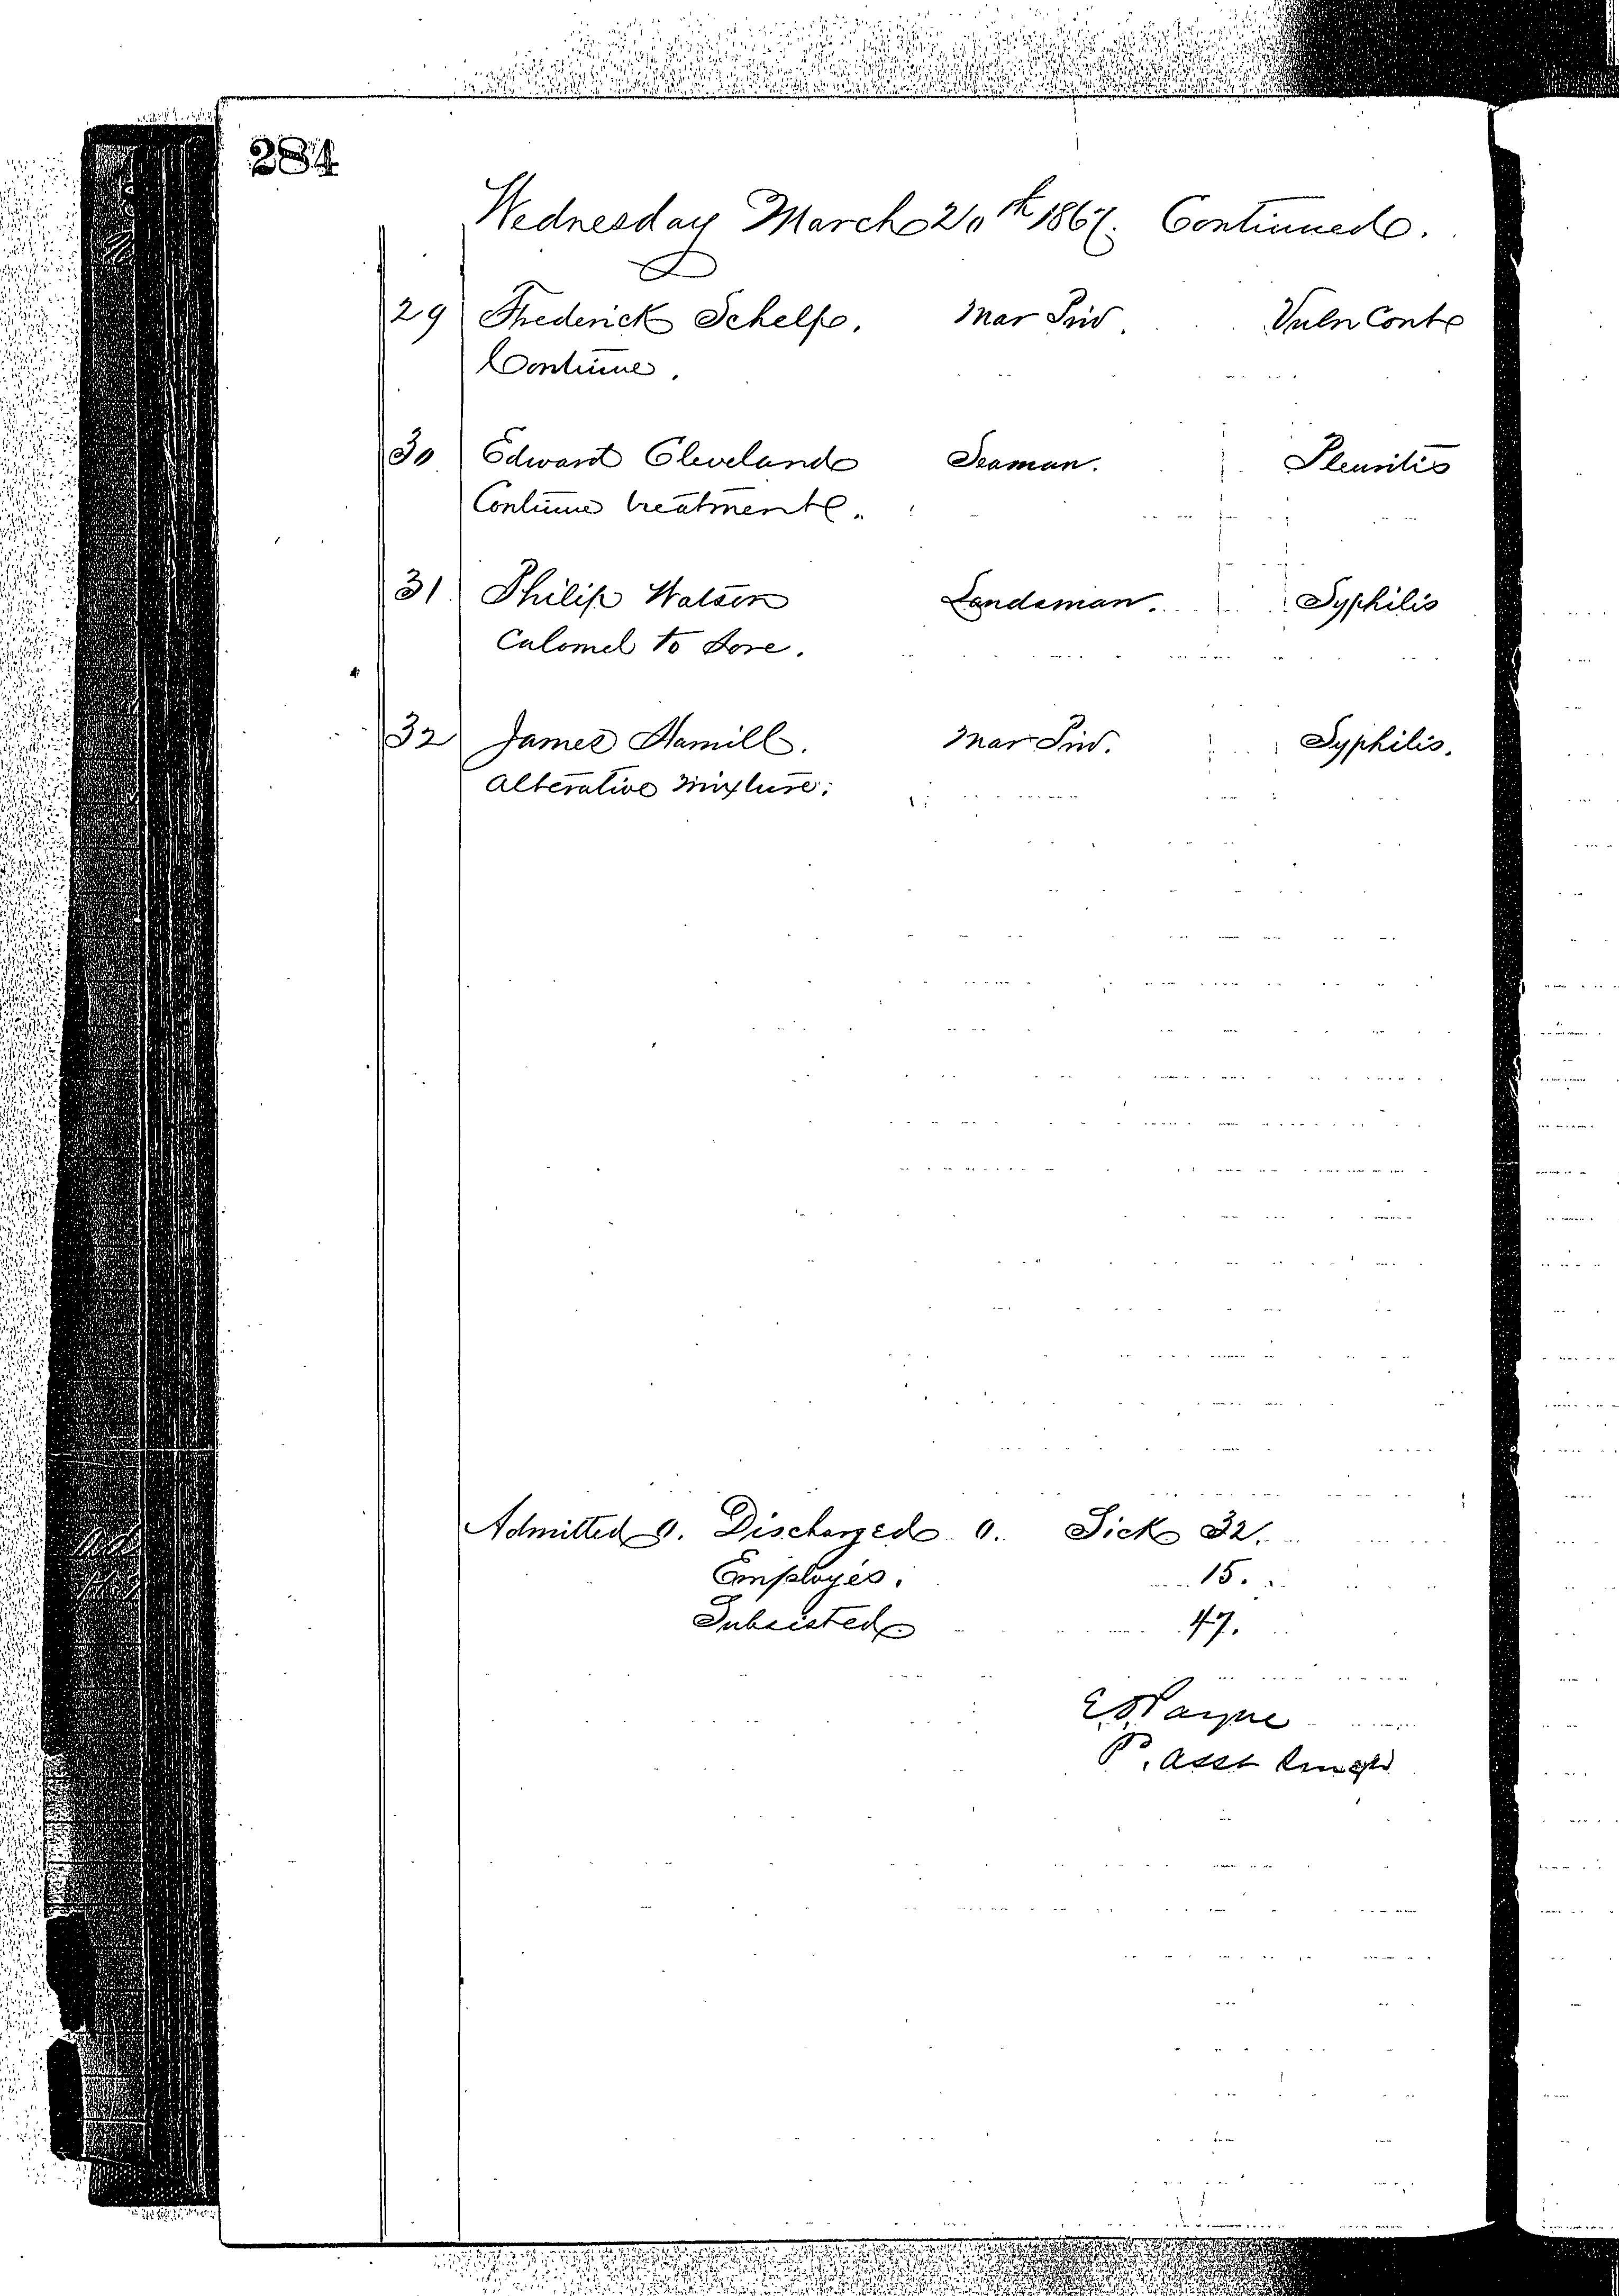 284
Wednesday March 20th 1867. Continued.
29 Frederick Schelp. Mar Priv. Vuln Cont
Continue.
30 Edward Cleveland Seaman. Pleuritis
Continue treatment.
31 Philip Watson Landsman. Syphilis
Calomel to sore.
32 James Hamill. Mar Priv. Syphilis.
Alterative mixture.
Admitted 0. Discharged 0. Sick 32.
Employés. 15.
Subsisted 47.
Payne
P. Asst Surg